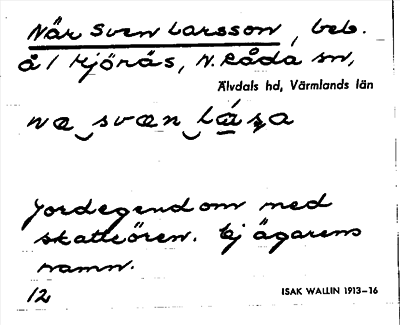 När Sven Larsson, beb.
å 1 Mjönäs, N. Råda sn,
Älvdals hd, Värmlands län
næ‿svæn‿lása
Jordegendom med
skatteören. Ej ägarens
namn.
12
ISAK WALLIN 1913–16